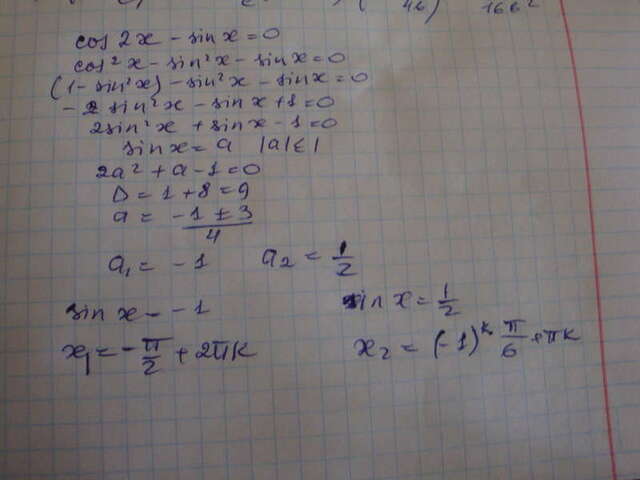 4b) 16b²
cos 2x - sin x = 0
cos²x - sin²x - sin x = 0
(1 - sin²x) - sin²x - sin x = 0
- 2 sin²x - sin x + 1 = 0
2 sin²x + sin x - 1 = 0
sin x = a |a| ≤ 1
2a² + a - 1 = 0
D = 1 + 8 = 9
a = (-1 ± 3)/4
a₁ = -1 a₂ = 1/2
sin x = -1 sin x = 1/2
x₁ = -π/2 + 2πk x₂ = (-1)ᵏ π/6 + πk